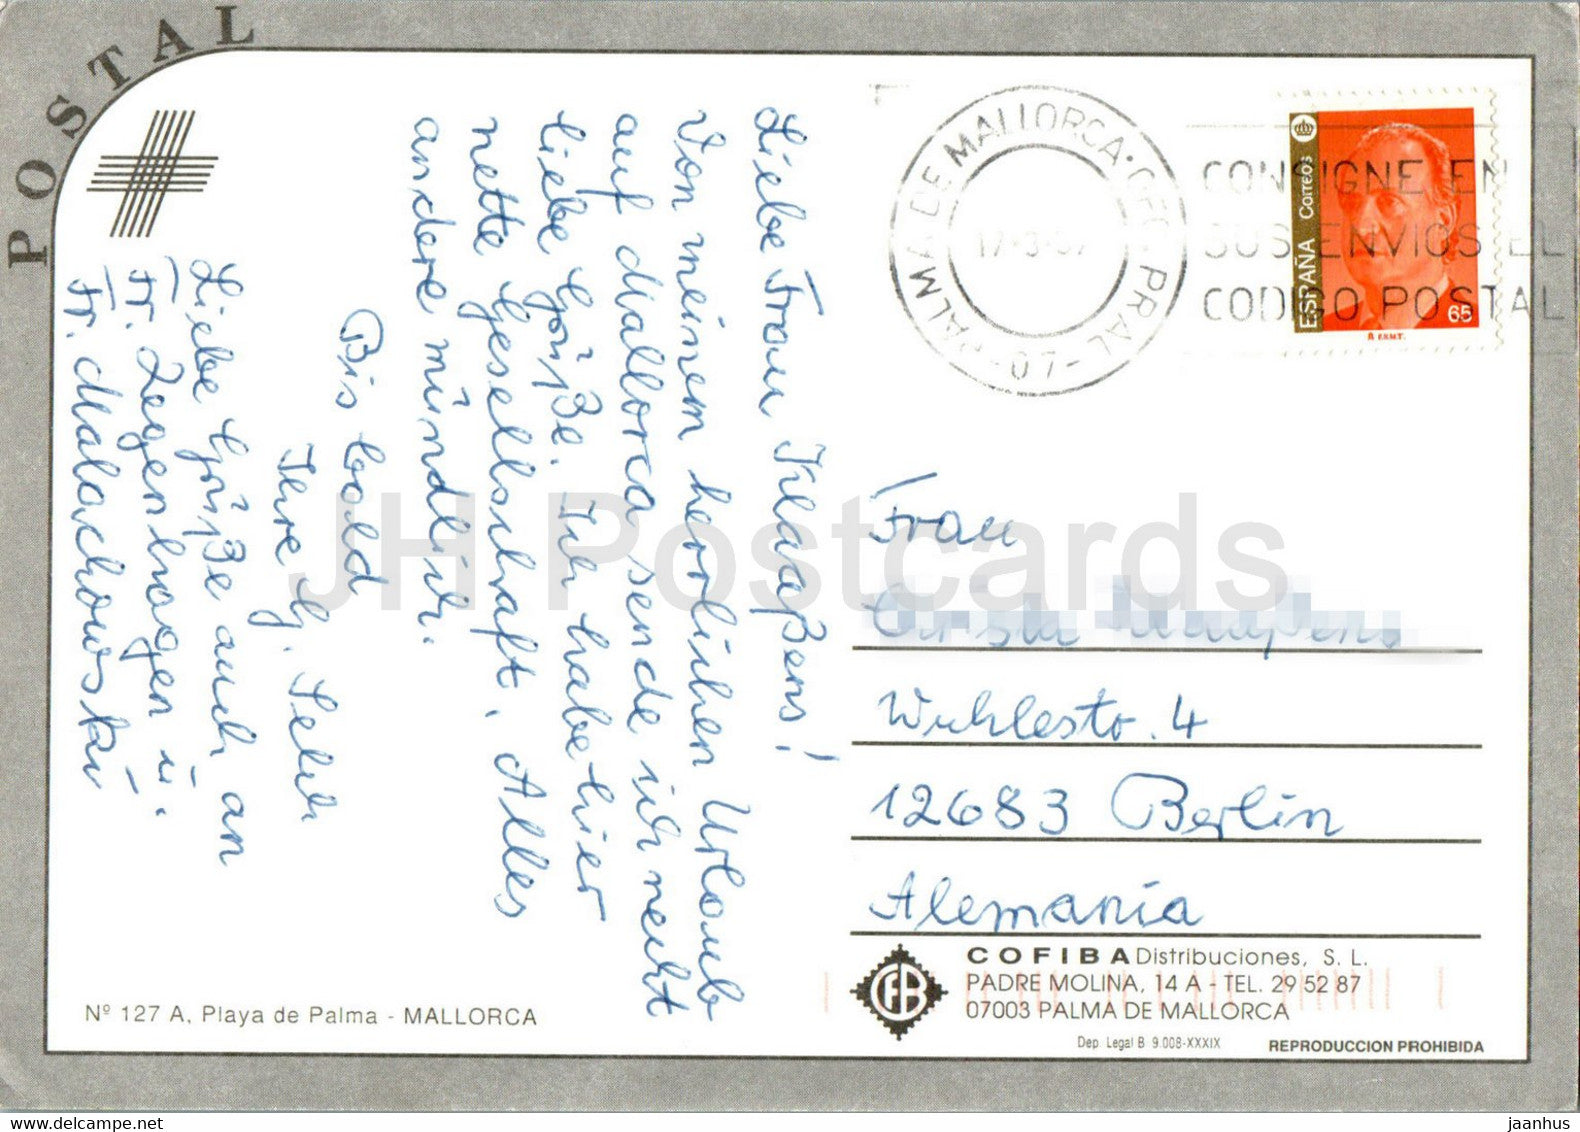 POSTAL
Liebe Frau Klaaßens!
Von meinem herrlichen Urlaub
auf Mallorca sende ich recht
liebe Grüße. Ich habe hier
nette Gesellschaft. Alles
andere mündlich.
Bis bald
Ihre G. Selch
Liebe Grüße auch an
Fr. Zegenhagen u.
Fr. Malachowski
PALMA DE MALLORCA·
PRAL
-07-
CONSIGNE EN
SUS ENVIOS EL
CODIGO POSTAL
ESPAÑA Correos
65
Frau
Wuhlestr. 4
12683 Berlin
Alemania
Nº 127 A, Playa de Palma - MALLORCA
COFIBA Distribuciones, S. L.
PADRE MOLINA, 14 A - TEL. 29 52 87
07003 PALMA DE MALLORCA
Dep. Legal B 9.008-XXXIX
REPRODUCCION PROHIBIDA
JH Postcards
jaanhus © www.delcampe.net